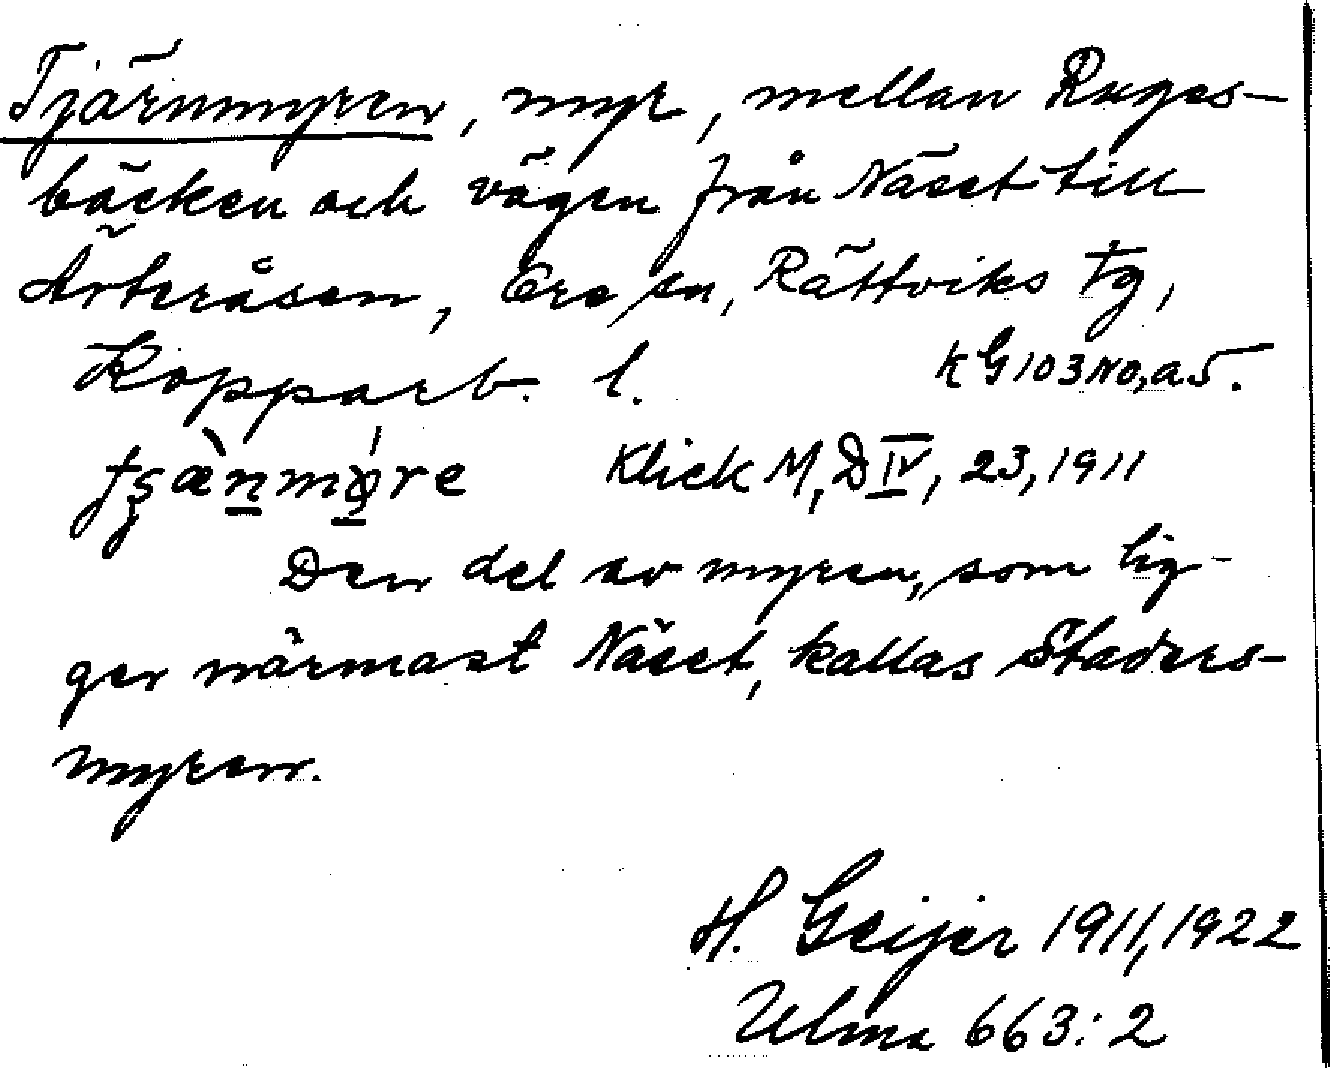 Tjärnmyren, myr, mellan Ruges-
bäcken och vägen från Näset till
Ärteråsen, Ore sn, Rättviks tg,
Kopparb. l. KG103NO,a5.
Klick M, D IV, 23, 1911
Den del av myren, som lig-
ger närmast Näset, kallas Staders-
myren.
H. Geijer 1911, 1922
Ulma 663:2